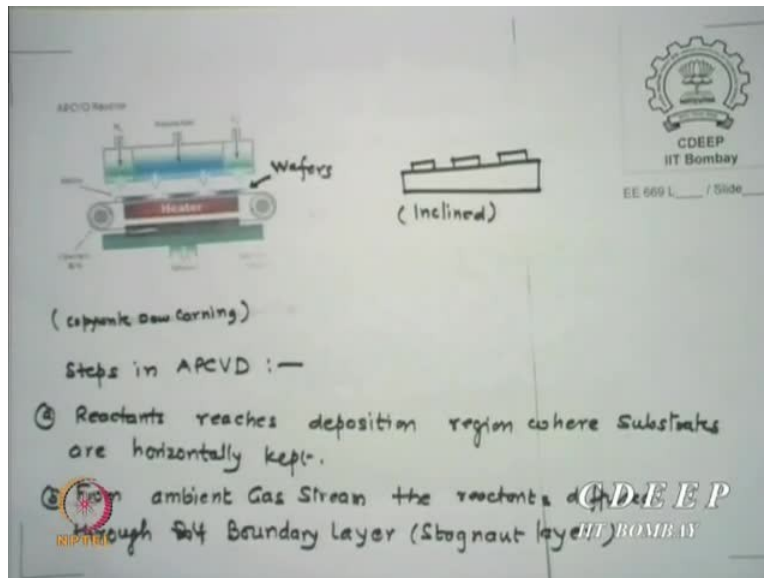 CDEEP
IIT Bombay
EE 669 L___ / Slide___
APCVD Reactor
N₂
N₂
Wafers
Heater
(Inclined)
(Dow Corning)
Steps in APCVD :—
ⓐ Reactants reaches deposition region where substrates
are horizontally kept.
ⓑ From ambient Gas Stream the reactants
through Boundary Layer (Stagnant layer)
CDEEP
IIT BOMBAY
NPTEL